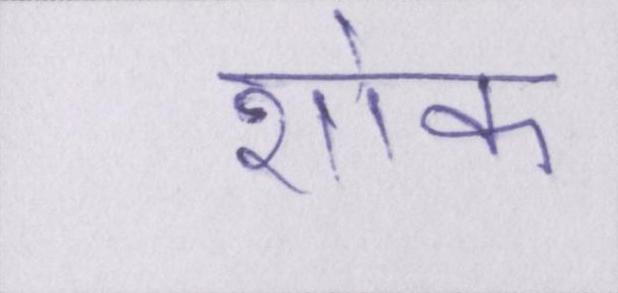 शोक